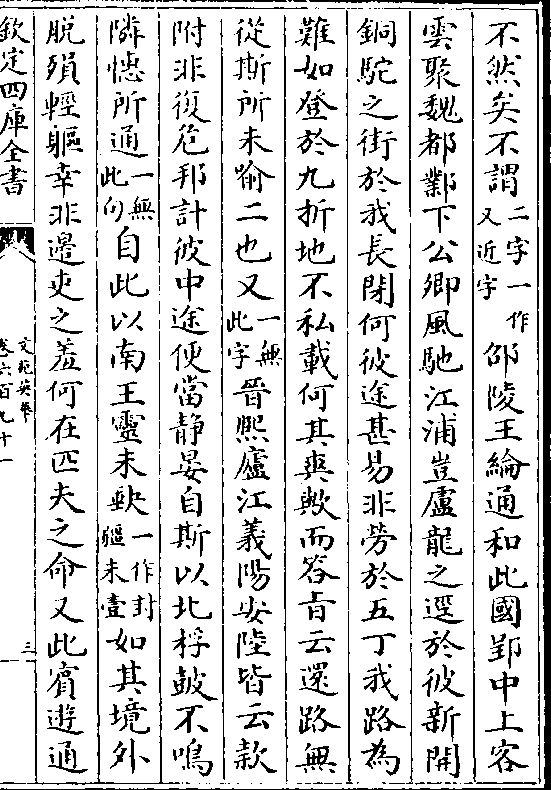 不然矣不謂二字一作又近字邵陵王綸通和此國郢中上客
雲聚魏都鄴下公卿風馳江浦豈盧龍之逕於彼新開
銅駝之街於我長閉何彼途甚易非勞於五丁我路為
難如登於九折地不私載何其爽歟而答旨云還路無
從斯所未喻二也又一無此字晉熙廬江義陽安陸皆云款
附非復危邦計彼中途便當静晏自斯以北桴鼓不鳴
隣所通一無此句自此以南王靈未缺一作封疆未壹如其境外
脱殞輕軀幸非邊吏之羞何在匹夫之命又此賓遊通
欽定四庫全書
文苑英華
卷六百九十一
三